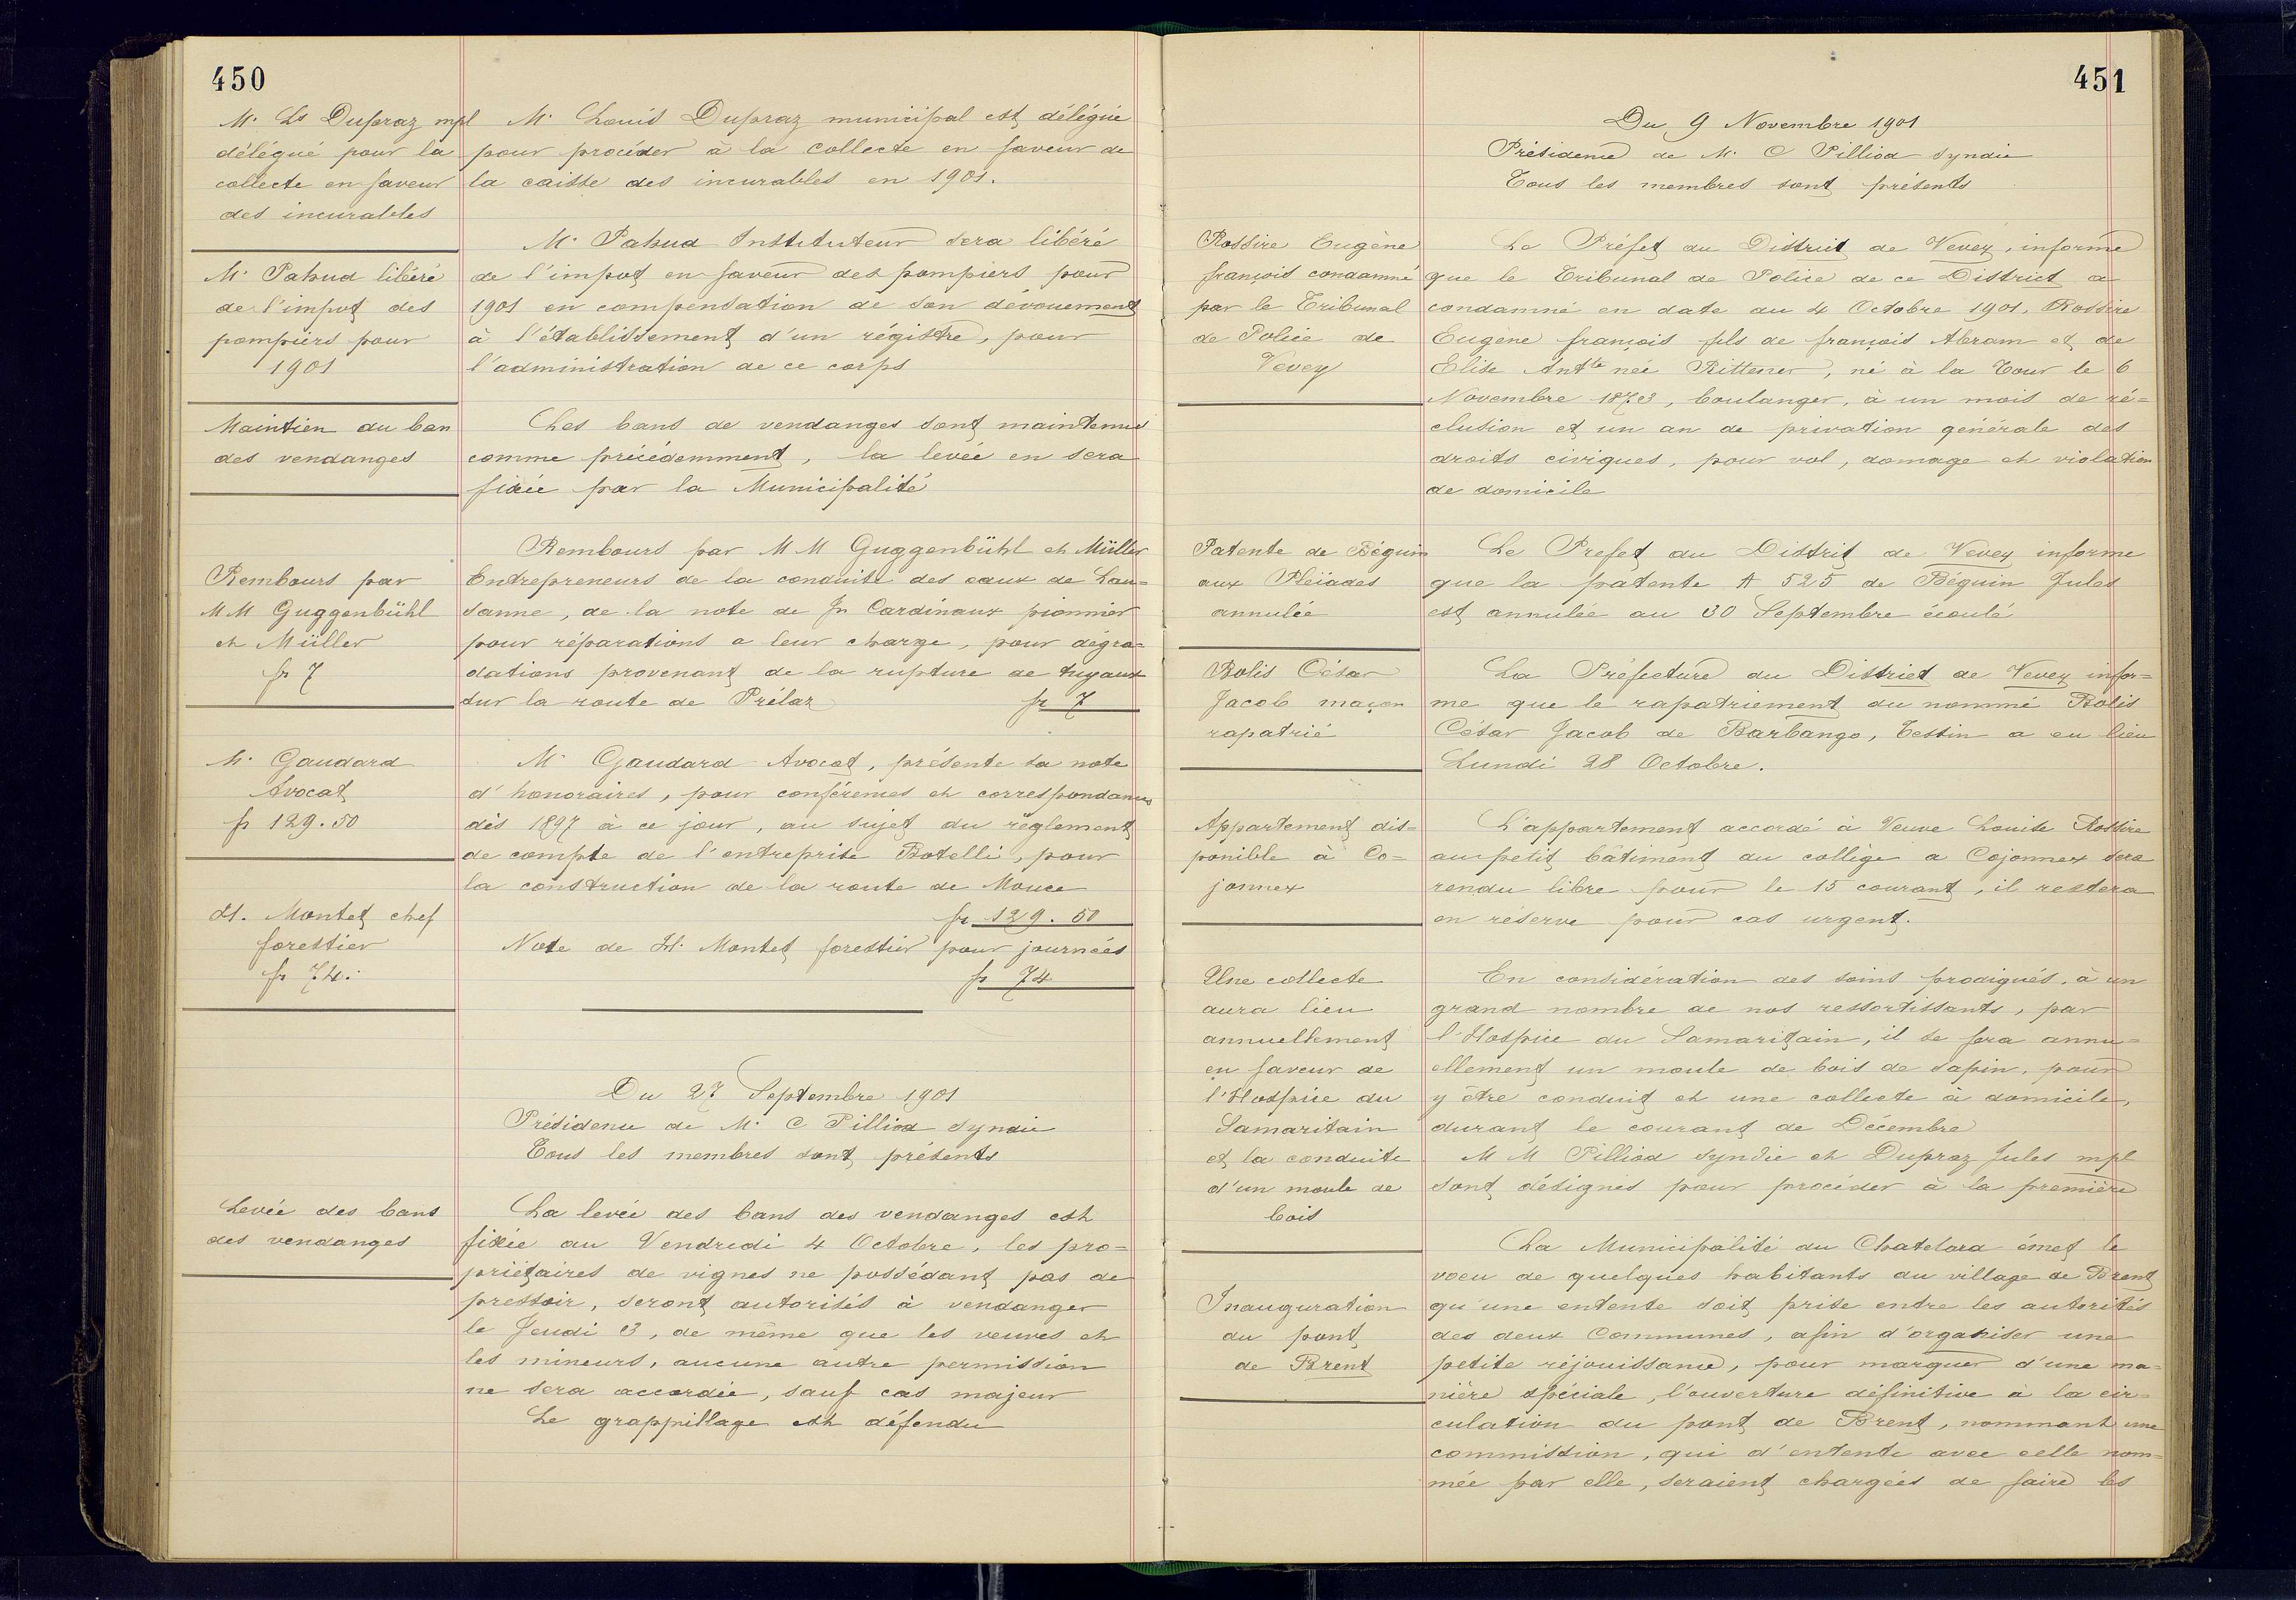 450
M. Ls Dupraz mpl
délégué pour la
collecte en faveur
des incurables
M. Louis Dupraz municipal est délégué
pour procéder à la collecte en faveur de
la caisse des incurables en 1901.
M. Pahud libéré
de l'impot des
pompiers pour
1901
M. Pahud Instituteur sera libéré
de l'impot en faveur des pompiers pour
1901 en compensation de son dévouement
à l'établissement d'un régistre, pour
l'administration de ce corps
Maintien du ban
des vendanges
Les bans de vendanges sont maintenus
comme précédemment, la levée en sera
fixée par la Municipalité
Rembours par
MM Guggenbühl
et Müller
fr 7
Rembours par MM Guggenbühl et Müller
Entrepreneurs de la conduite des eaux de Lau=
sanne, de la note de Jn Cardinaux pionnier
pour réparations a leur charge, pour dégra=
dations provenant de la rupture de tuyaux
sur la route de Prélaz fr 7
M. Gaudard
Avocat
fr 129.50
M. Gaudard Avocat, présente sa note
d'honoraires, pour conférences et correspondances
dès 1897 à ce jour, au sujet du règlement
de compte de l'entreprise Botelli, pour
la construction de la route de Mouce
fr 129.50
H. Montet chef
forestier
fr 74.
Note de H. Montet forestier pour journées
fr 74
Du 27 Septembre 1901
Présidence de M. C Pilliod Syndic
Tous les membres sont présents
Levée des bans
des vendanges
La levée des bans des vendanges est
fixée au Vendredi 4 Octobre, les pro=
priétaires de vignes ne possédant pas de
pressoir, seront autorisés à vendanger
le Jeudi 3, de même que les veuves et
les mineurs, aucune autre permission
ne sera accordée, sauf cas majeur
Le grappillage est défendu
451
Du 9 Novembre 1901
Présidence de M. C Pilliod Syndic
Tous les membres sont présents
Rossire Eugène
françois condamné
par le Tribunal
de Police de
Vevey
Le Préfet du District de Vevey, informe
que le Tribunal de Police de ce District a
condamné en date du 4 Octobre 1901, Rossire
Eugène françois fils de françois Abram et de
Elise Antte née Rittener, né à la Tour le 6
Novembre 1873, boulanger, à un mois de ré=
clusion et un an de privation générale des
droits civiques, pour vol, domage et violation
de domicile
Patente de Béguin
aux Pléiades
annulée
Le Prefet du Distrit de Vevey informe
que la patente A 525 de Béguin Jules
est annulée au 30 Septembre écoulé
Bolis César
Jacob maçon
rapatrié
La Préfecture du District de Vevey infor=
me que le rapatriement du nommé Bolis
César Jacob de Barbango, Tessin a eu lieu
Lundi 28 Octobre.
Appartement dis=
ponible à Co=
jonnex
L'appartement accordé à Veuve Louise Rossire
au petit bâtiment du collège a Cojonnex sera
rendu libre pour le 15 courant, il restera
en réserve pour cas urgent.
Une collecte
aura lieu
annuellement
en faveur de
l'Hospice du
Samaritain
et la conduite
d'un moule de
bois
En considération des soins prodigués, à un
grand nombre de nos ressortissants, par
l'Hospice du Samaritain, il se fera annu=
ellement un moule de bois de sapin, pour
y être conduit et une collecte à domicile,
durant le courant de Décembre
MM Pilliod syndic et Dupraz Jules mpl
sont désignés pour procéder à la première
Inauguration
du pont
de Brent
La Municipalité du Chatelard émet le
voeu de quelques habitants du village de Brent
qu'une entente soit prise entre les autorités
des deux Communes, afin d'organiser une
petite réjouissance, pour marquer d'une ma=
nière spéciale, l'ouverture définitive à la cir=
culation du pont de Brent, nommant une
commission, qui d'entente avec celle nom=
mée par elle, seraient chargées de faire les